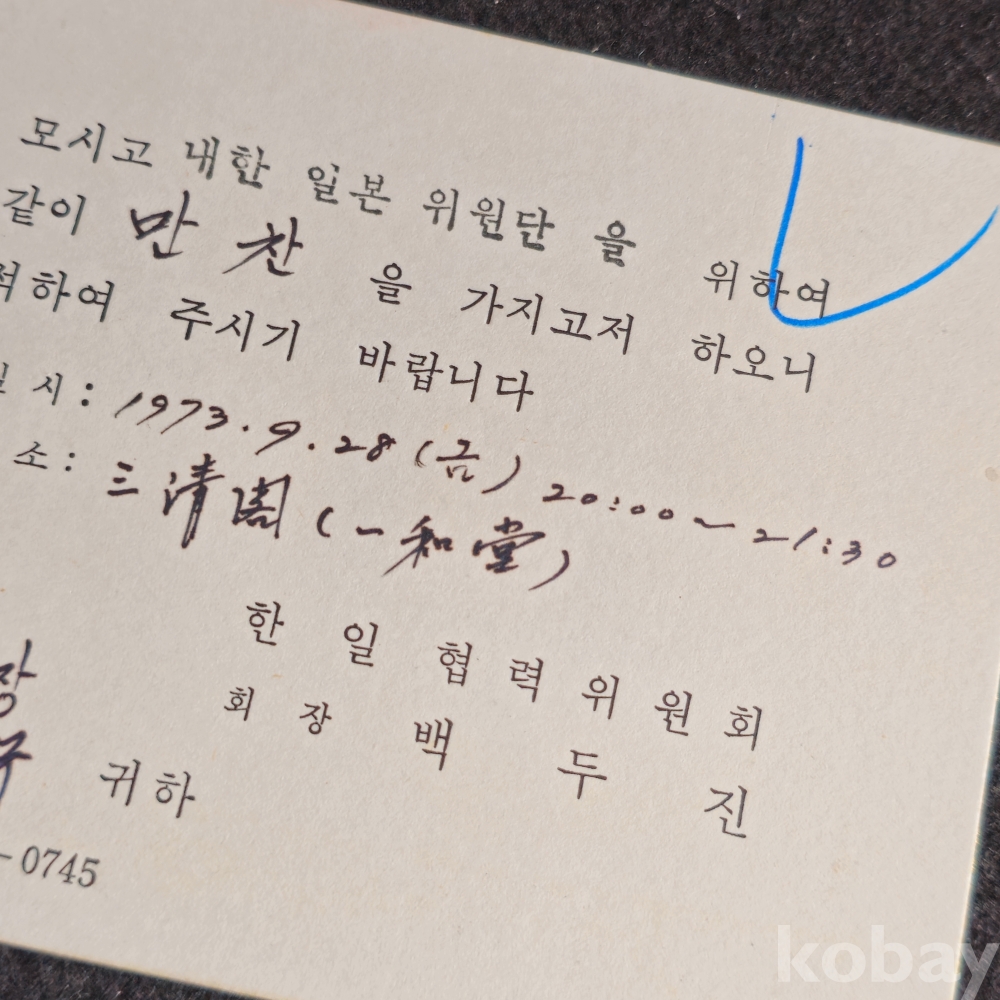 모시고 내한 일본 위원단 을 위하여
같이 만 찬 을 가지고저 하오니
하여 주시기 바랍니다
시: 1973. 9. 28 (금) 20:00 ~ 21:30
소: 三清閣 (一和堂)
한 일 협 력 위 원 회
장
회 장 백 두 진
귀하
-0745
kobay